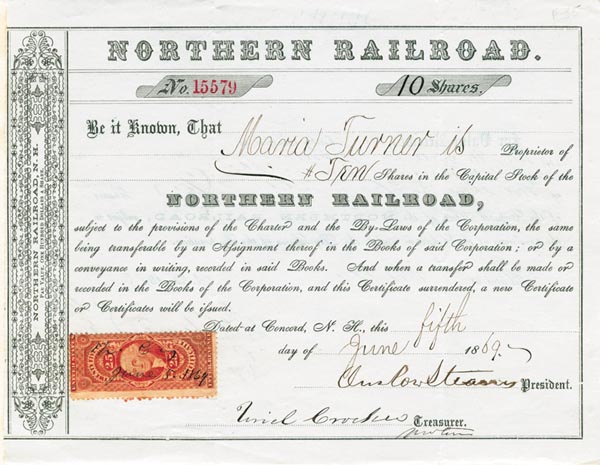 NORTHERN RAILROAD.
No. 15579
10 Shares.
Be it Known, That Maria Turner is Proprietor of
#Ten Shares in the Capital Stock of the
NORTHERN RAILROAD,
subject to the provisions of the Charter and the By-Laws of the Corporation, the same
being transferable by an Assignment thereof in the Books of said Corporation; or by a
conveyance in writing, recorded in said Books. And when a transfer shall be made or
recorded in the Books of the Corporation, and this Certificate surrendered, a new Certificate
or Certificates will be issued.
Dated at Concord, N. H., this fifth
day of June 1869
Onslow Stearns President.
Uriel Crocker Treasurer.
NORTHERN RAILROAD, N. H.
25